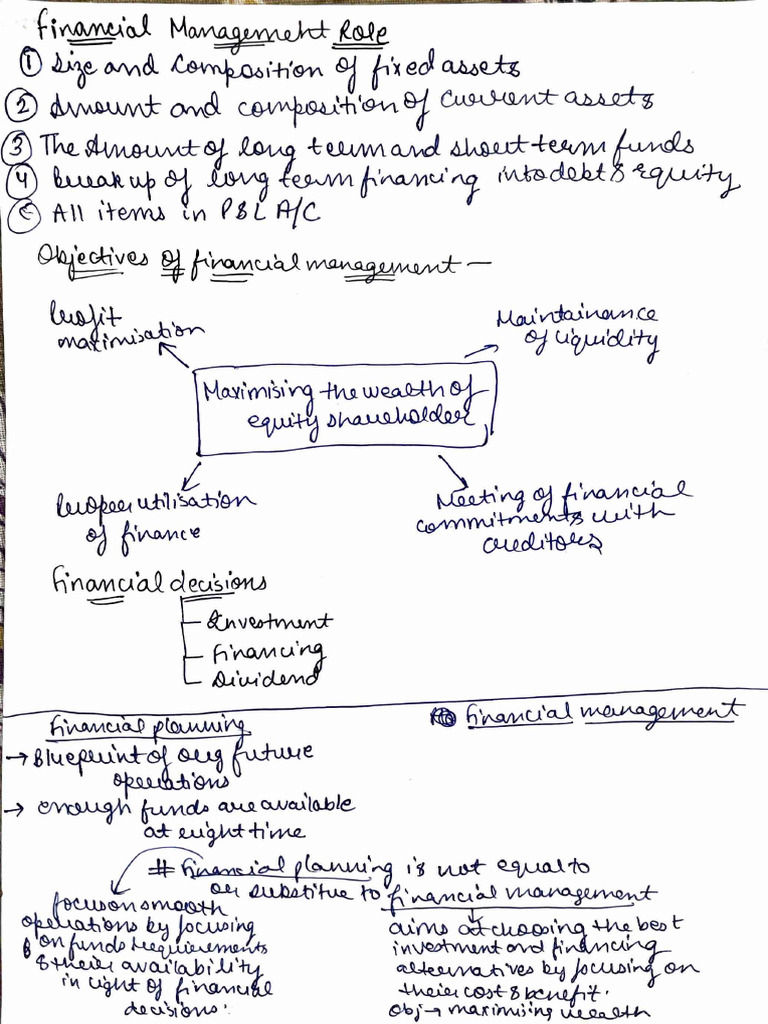 Financial Management Role
① Size and Composition of fixed assets
② Amount and composition of current assets
③ The Amount of long term and short term funds
④ Breakup of long term financing into debt & equity
⑤ All items in P&L A/C
Objectives of financial management —
Profit
maximisation
Maintainance
of liquidity
Maximising the wealth of
equity shareholder
Proper utilisation
of finance
Meeting of financial
commitments with
creditors
Financial decisions
Investment
Financing
Dividend
Financial planning
Financial management
→ Blueprint of org future
operations
→ enough funds are available
at right time
# Financial planning is not equal to
or substitue to financial management
focus on smooth
operations by focusing
on funds requirements
& their availability
in light of financial
decisions.
aims at choosing the best
investment and financing
alternatives by focusing on
their cost & benefit.
Obj → maximising wealth